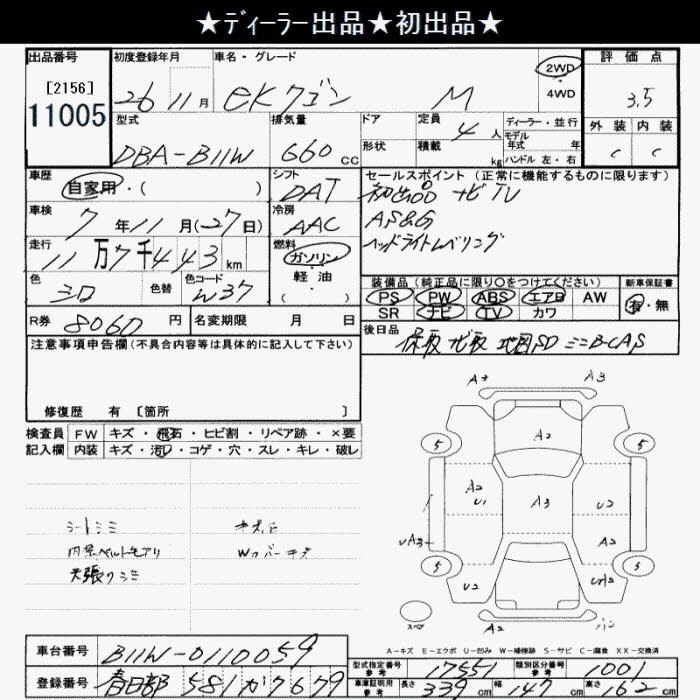 ★ディーラー出品★初出品★
出品番号 初度登録年月 車名・グレード 評価点
[2156] 26 11月 eKワゴン M 2WD・4WD 3.5
11005
型式 排気量 ドア 定員 4人 ディーラー・並行 外装 内装
DBA-B11W 660cc 形状 積載 kg モデル年式 年 ハンドル 左・右 C C
車歴 シフト セールスポイント(正常に機能するものに限ります)
自家用・( ) DAT 初出品 ナビ TV
車検 冷房 AS&G
7年11月(27日) AAC ヘッドライトレベリング
走行 燃料
11万7千443km ガソリン・軽油・( )
色 色替 色コード 装備品(純正品に限り○をつけてください) 新車保証書
シロ W37 PS PW ABS エアB AW 有・無
SR ナビ TV カワ
R券 8060円 名変期限 月 日 後日品
保取 ナビ取 地図SD ミニB-CAS
注意事項申告欄(不具合内容等は具体的に記入して下さい)
修復歴 有 [箇所 ]
A3 A3
検査員記入欄 FW キズ・飛石・ヒビ割・リペア跡・×要
内装 キズ・汚れ・コゲ・穴・スレ・キレ・破レ
A2
5 5
A2 U1 A3 U2
UA3 A2
5 5
U2 UA2
A2
シートシミ キズ凹
内装ベルトモアリ Wカバーキズ
天張りシミ
スペア
A-キズ E-エクボ U-凹み W-補修跡 S-サビ C-腐食 XX-交換済
車台番号 B11W-0110059
登録番号 春日部 581か7679
型式指定番号 参考 17551 類別区分番号 参考 1001
車庫証明用 参考 長さ 339cm 幅 147cm 高さ 162cm